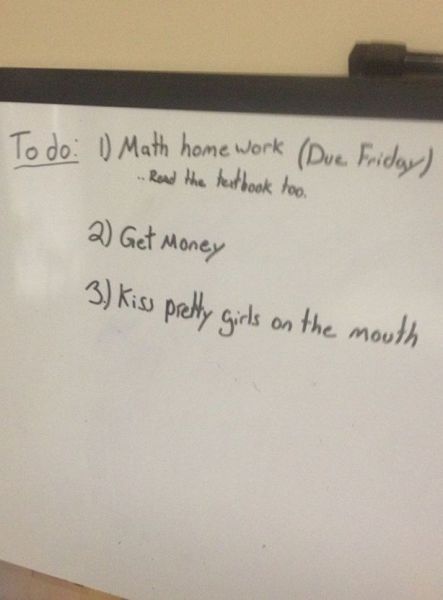 To do: 1) Math home work (Due Friday)
.. Read the textbook too.
2) Get Money
3.) Kiss pretty girls on the mouth